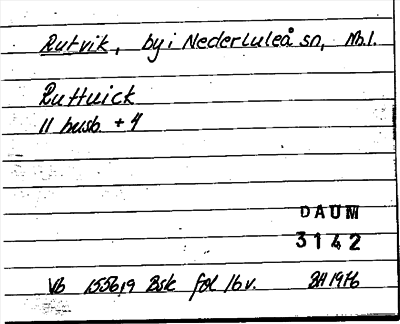 Rutvik, by i Nederluleå sn, Nb.l.
Ruttuick
11 husb. + 4
DAUM
3142
Vb 1556,9 Bsk fol 16v. BH 1976